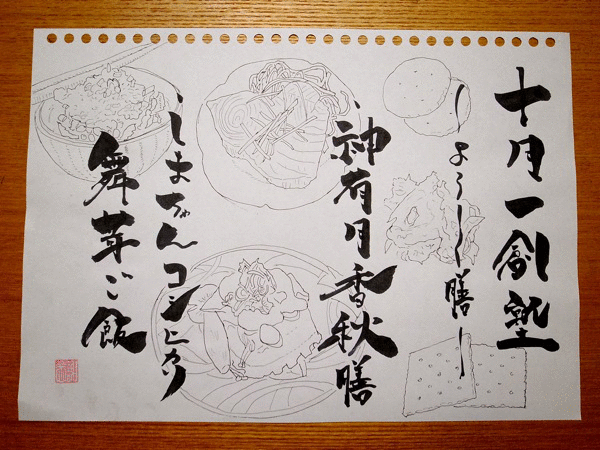 十月一創塾
ーよろしー膳ー
神有月香秋膳
しまちゃんコシヒカリ
舞茸ご飯